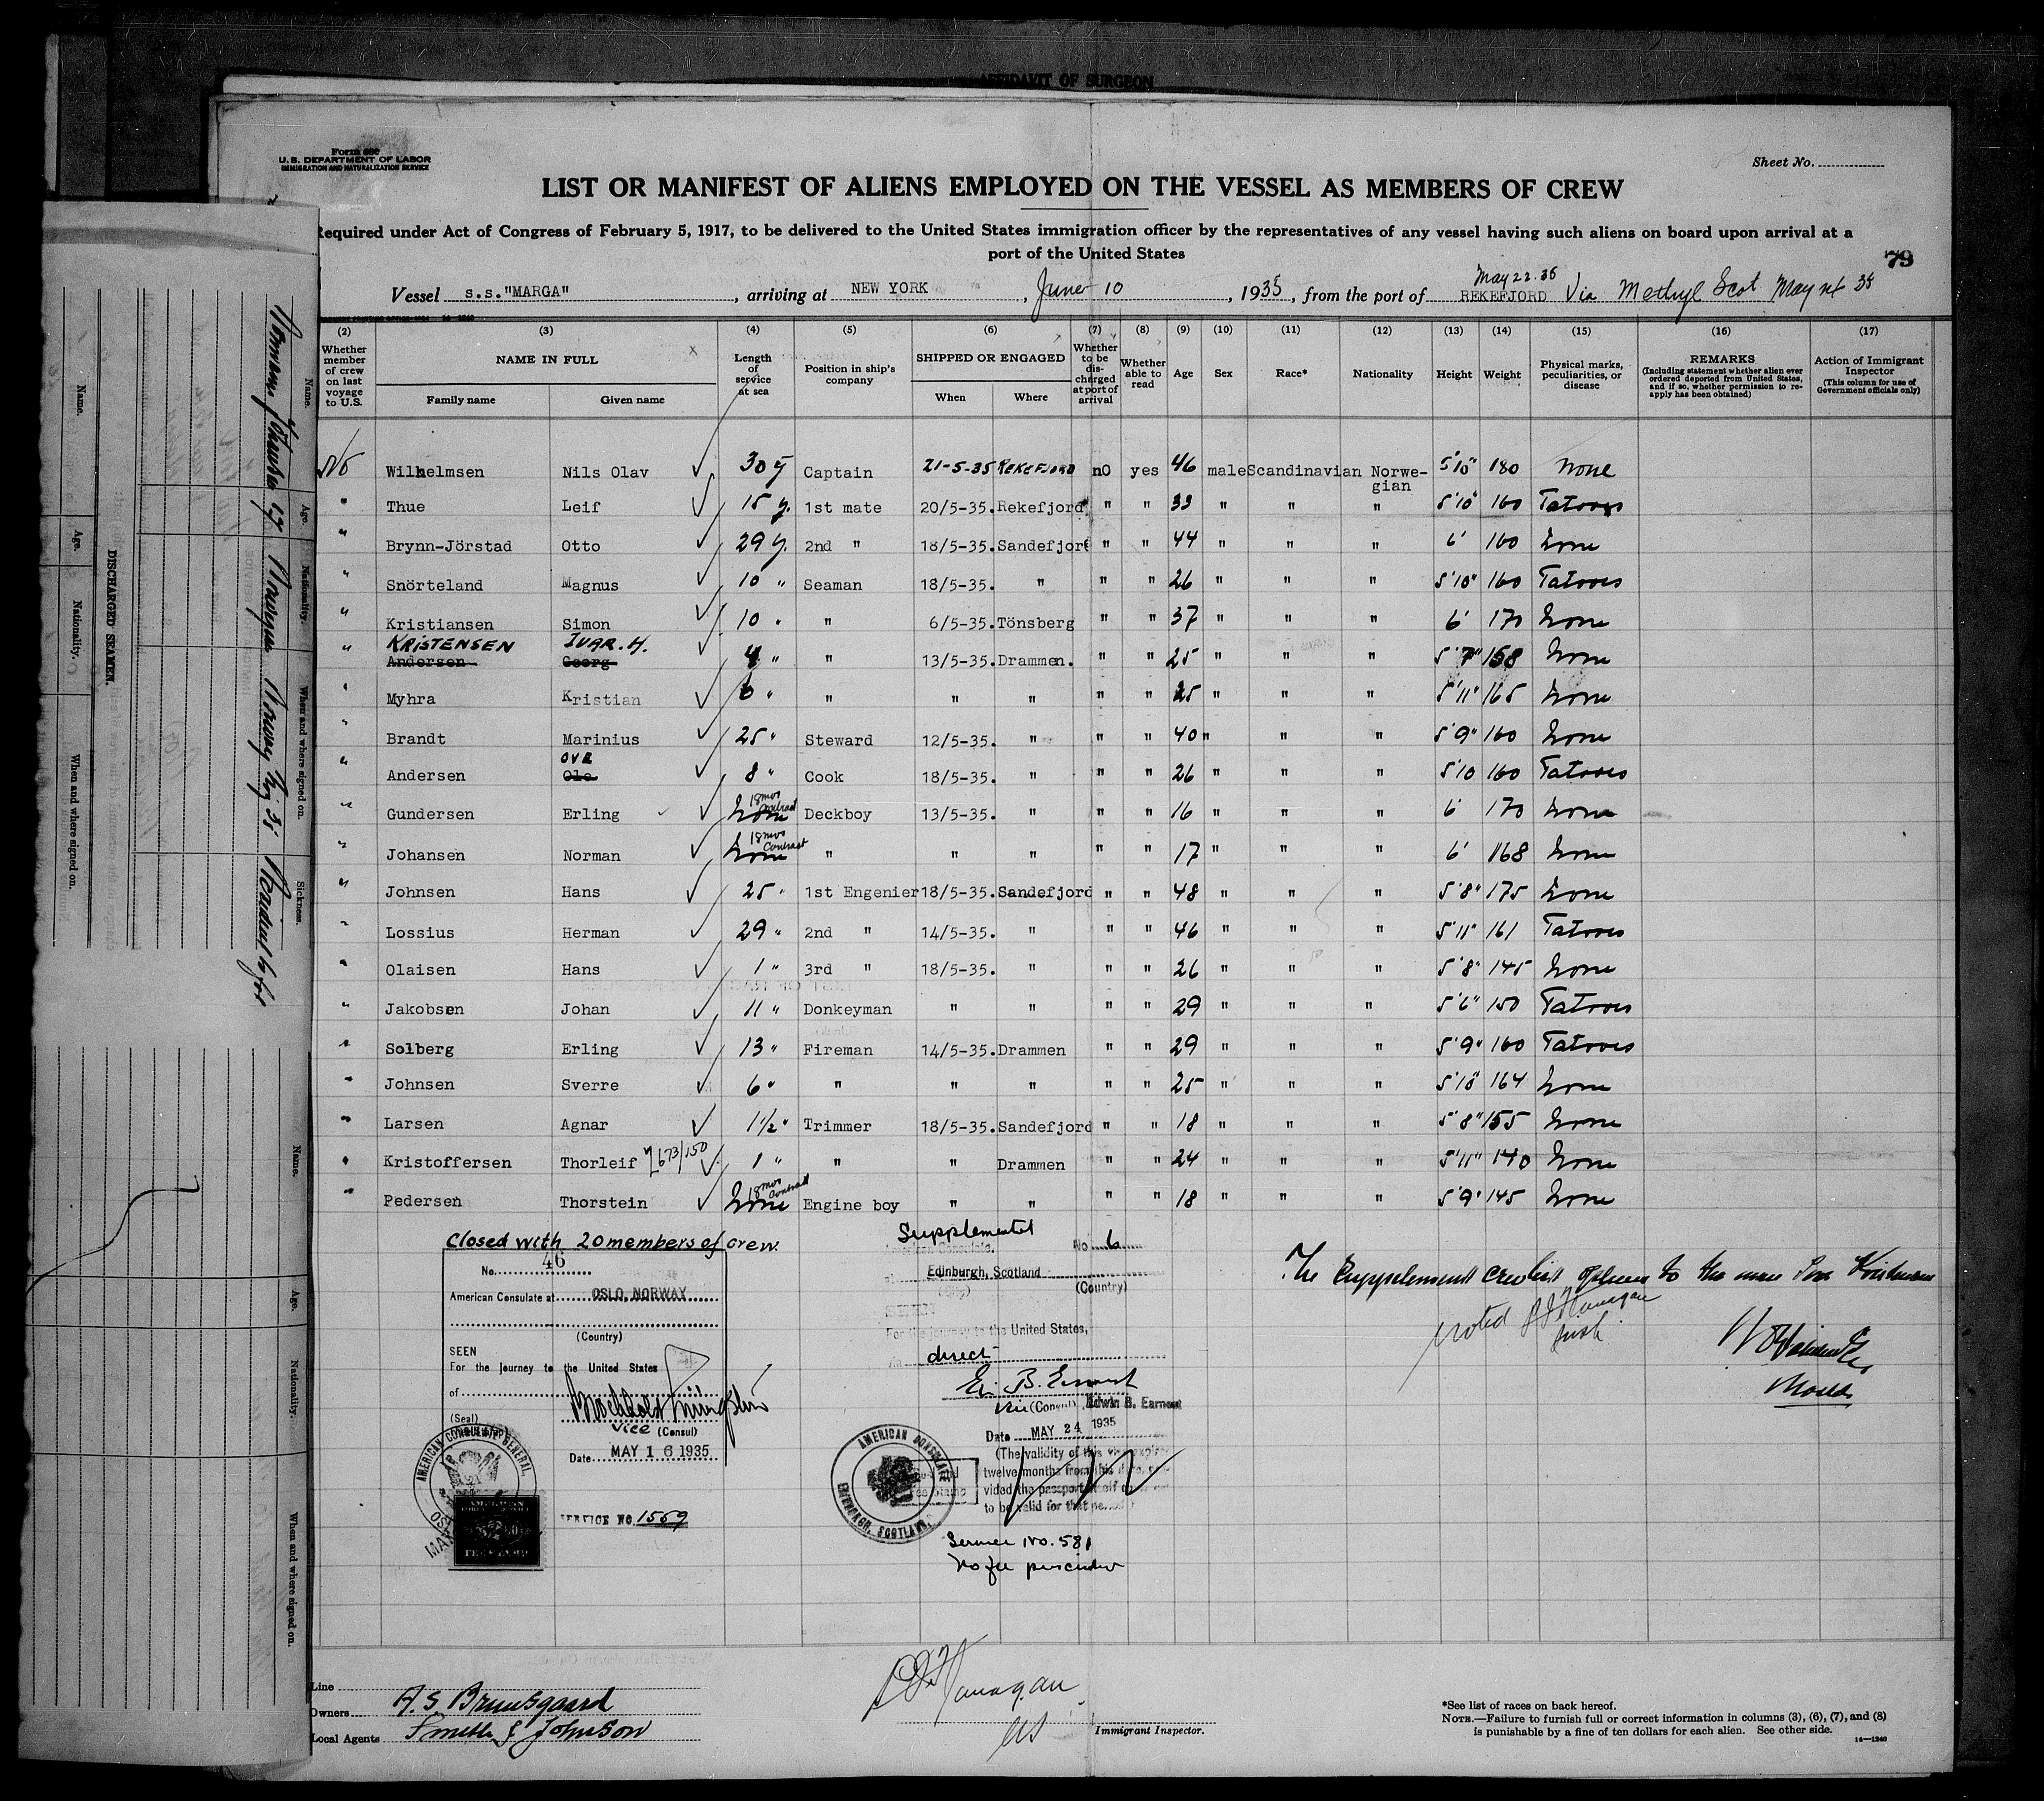 AFFIDAVIT OF SURGEON
Form 680
U.S. DEPARTMENT OF LABOR
IMMIGRATION AND NATURALIZATION SERVICE
Sheet No.
LIST OR MANIFEST OF ALIENS EMPLOYED ON THE VESSEL AS MEMBERS OF CREW
Required under Act of Congress of February 5, 1917, to be delivered to the United States immigration officer by the representatives of any vessel having such aliens on board upon arrival at a
port of the United States
79
Vessel s.s."MARGA", arriving at NEW YORK, June 10, 1935, from the port of REKEFJORD May 22.35 Via Methyl Scot May 35
(2) (3) (4) (5) (6) (7) (8) (9) (10) (11) (12) (13) (14) (15) (16) (17)
Whether member of crew on last voyage to U.S.
NAME IN FULL
Family name
Given name
Length of service at sea
Position in ship's company
SHIPPED OR ENGAGED
When
Where
Whether to be discharged at port of arrival
Whether able to read
Age
Sex
Race*
Nationality
Height
Weight
Physical marks, peculiarities, or disease
REMARKS
(Including statement whether alien ever ordered deported from United States, and if so, whether permission to reapply has been obtained)
Action of Immigrant Inspector
(This column for use of Government officials only)
No Wilhelmsen Nils Olav 30 y Captain 21-5-35 REKEFJORD no yes 46 male Scandinavian Norwegian 5'10" 180 None
" Thue Leif 15 y. 1st mate 20/5-35. Rekefjord " " 33 " " " 5'10" 160 Tatooes
" Brynn-Jörstad Otto 29 y. 2nd " 18/5-35. Sandefjord " " 44 " " " 6' 160 None
" Snörteland Magnus 10 " Seaman 18/5-35. " " " 26 " " " 5'10" 160 Tatooes
" Kristiansen Simon 10 " " 6/5-35. Tönsberg " " 37 " " " 6' 170 None
" KRISTENSEN IVAR. H. Andersen Georg 4 " " 13/5-35. Drammen. " " 25 " " " 5'7" 158 None
" Myhra Kristian 6 " " " " " " 25 " " " 5'11" 165 None
" Brandt Marinius 25 " Steward 12/5-35. " " " 40 " " " 5'9" 160 None
" Andersen OVE Ole 8 " Cook 18/5-35. " " " 26 " " " 5'10 160 Tatooes
" Gundersen Erling None 18 mos contract Deckboy 13/5-35. " " " 16 " " " 6' 170 None
" Johansen Norman None 18 mos contract " " " " " 17 " " " 6' 168 None
" Johnsen Hans 25 " 1st Engenier 18/5-35. Sandefjord " " 48 " " " 5'8" 175 None
" Lossius Herman 29 " 2nd " 14/5-35. " " " 46 " " " 5'11" 161 Tatooes
" Olaisen Hans 1 " 3rd " 18/5-35. " " " 26 " " " 5'8" 145 None
" Jakobsen Johan 11 " Donkeyman " " " " 29 " " " 5'6" 150 Tatooes
" Solberg Erling 13 " Fireman 14/5-35. Drammen " " 29 " " " 5'9" 160 Tatooes
" Johnsen Sverre 6 " " " " " " 25 " " " 5'10" 164 None
" Larsen Agnar 1½ " Trimmer 18/5-35. Sandefjord " " 18 " " " 5'8" 155 None
" Kristoffersen Thorleif 673/150 1 " " " Drammen " " 24 " " " 5'11" 140 None
" Pedersen Thorstein None 18 mos contract Engine boy " " " " 18 " " " 5'9" 145 None
Closed with 20 members of crew.
No. 46
American Consulate at OSLO, NORWAY
(Country)
SEEN
For the journey to the United States
of
(Seal)
Vice (Consul)
Date MAY 16 1935
AMERICAN CONSULATE GENERAL
SERVICE NO. 1559
Supplemental
American Consulate, No 6
at Edinburgh, Scotland
(City) (Country)
SEEN
For the journey to the United States,
direct
Edwin B. Earnest
Vice (Consul) Edwin B. Earnest
Date MAY 24 1935
(The validity of this visa expires
twelve months from this date, pro-
vided the passport itself
to be valid for that period)
AMERICAN CONSULATE
EDINBURGH, SCOTLAND
Service No. 581
No fee prescribed
The Supplement crew list to the man
noted J Flanagan
Insp.
Master
Line
Owners A. S. Bruusgaard
Local Agents Smith & Johnson
Flanagan
Immigrant Inspector.
*See list of races on back hereof.
NOTE.—Failure to furnish full or correct information in columns (3), (6), (7), and (8)
is punishable by a fine of ten dollars for each alien. See other side.
14—1240
DISCHARGED SEAMEN.
Name. Age. Nationality. When and where signed on. Sickness.
Norman Johansen 17 Norwegian
Name. Age. Nationality. When and where signed on.
Name. Age. Nationality. When and where signed on.